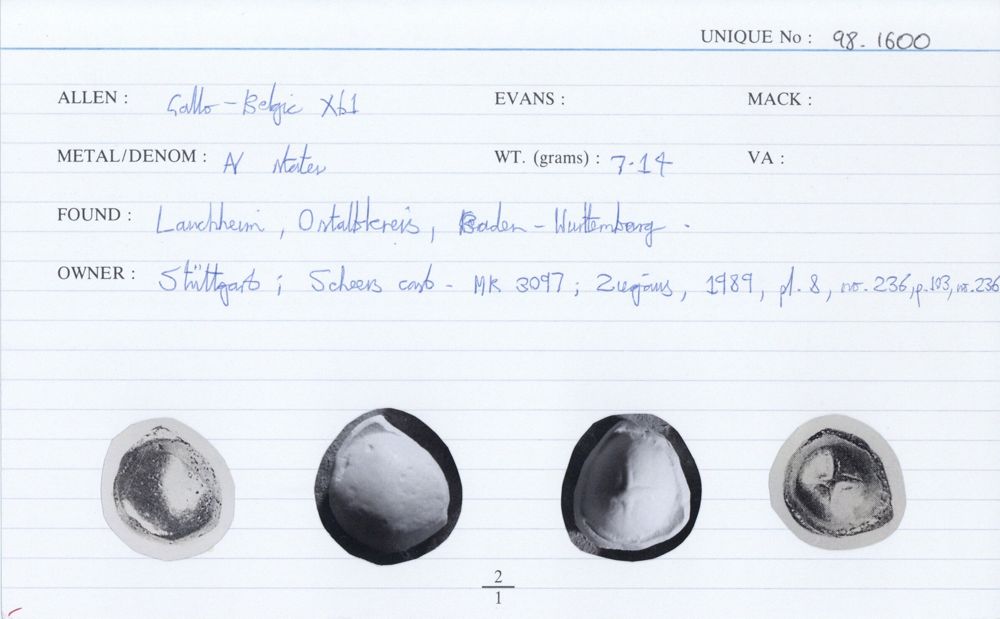 UNIQUE No : 98.1600
ALLEN : Gallo-Belgic Xb1 EVANS : MACK :
METAL/DENOM : N stater WT. (grams) : 7.14 VA :
FOUND : Lauchheim, Ostalbkreis, Baden-Wurttemberg.
OWNER : Stüttgart; Scheers cast - MK 3097; Ziegaus, 1989, pl. 8, no. 236, p.103, no. 236
2
1